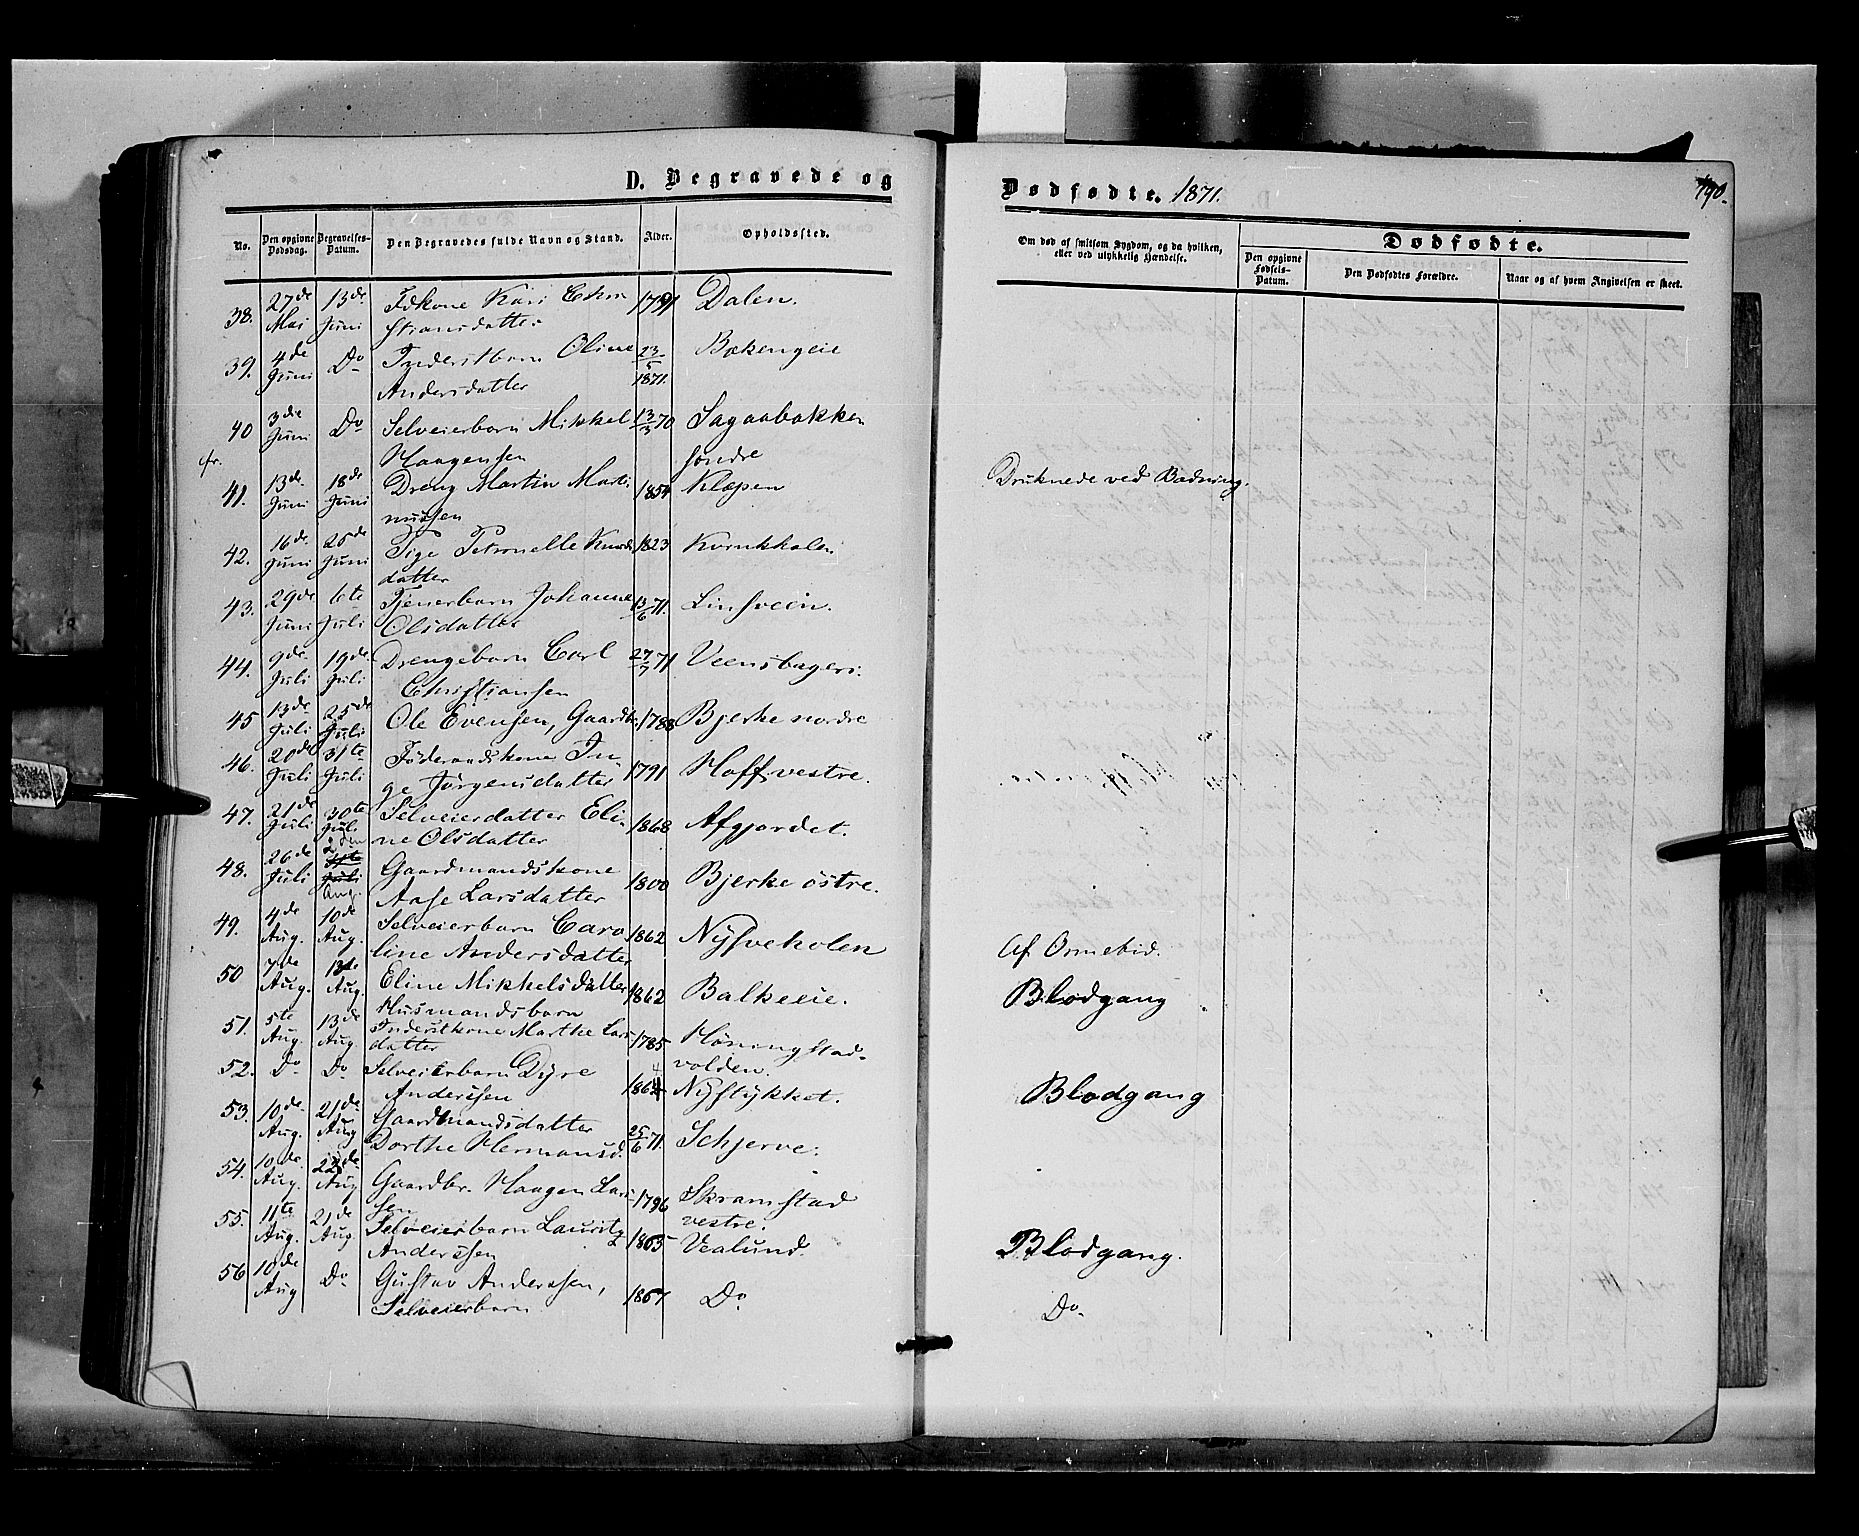 D. Begravede og
No.
Den opgivne Dødsdag.
Begravelses-Datum.
Den Begravedes fulde Navn og Stand.
Alder.
Opholdssted.
38. 27de Mai 13de Juni Fdkone Kari Chri 1791 Dalen.
stiansdatter
39. 4de Juni Do Inderstbarn Oline 23/5 1871. Bækengeie
Andersdatter
40 3die Juni Do Selveierbarn Mikkel 13/3 70 Sagaabakken
Haagensen søndre
fr.
41. 13de Juni 18de Juni Dreng Martin Marti 1854 Klæpen
nussen
42. 16de Juni 25de Juni Pige Petronelle Knuds 1823
datter
43. 29de Juni 6te Juli Tjenerbarn Johanne 13/6 71. Linsveen.
Olsdatter
44. 9de Juli 19de Juli Drengebarn Carl 27/7 71
Christiansen
45 13de Juli 25de Juli Ole Evensen, Gaardbr. 1788 Bjerke nordre
46. 20de Juli 31te Juli Føderaadskone In 1791 Hoff vestre.
ge Jørgensdatter
47. 21de Juli 30te Juli Selveierdatter Eli 1868 Afgjordet.
ne Olsdatter
48. 26de Juli 2den Aug. Gaardmandskone 1800 Bjerke østre.
Aase Larsdatter
49. 4de Aug. 10de Aug. Selveierbarn Caro 1862 Nysveholen
line Andersdatter
50 7de Aug. 13de Aug. Eline Mikkelsdatter 1862 Balkeeie.
Husmandsbarn
51. 5te Aug. 13de Aug. Inderstkone Marthe Lars 1785 Høningstad-
datter volden.
52. Do Do Selveierbarn Dyre 1864 Nystykket.
Anderssen
53. 10de Aug. 21de Aug Gaardmandsdatter 25/6 71. Schjerve.
Dorthe Hermansd.
54. 10de Aug. 22de Aug Gaardbr. Haagen Lars 1796 Skramstad
sen vestre.
55. 11te Aug. 21de Aug. Selveierbarn Lauritz 1865 Vealund.
Anderssen
56 10de Aug Do Gustav Anderssen, 1867 Do
Selveierbarn
Dødfødte. 1871.
190.
Om død af smitsom Sygdom, og da hvilken, eller ved ulykkelig Hændelse.
Dødfødte.
Den opgivne Fødsels-Datum.
Den Dødfødtes Forældre.
Naar og af hvem Angivelsen er skeet.
Druknede ved Badning.
Af Ormebid.
Blodgang
Blodgang
Blodgang.
Do